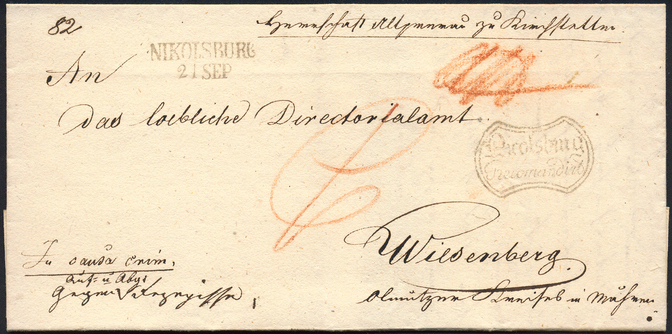 82
Herrschaft Altprerau zu Kirchstetten.
NIKOLSBURG
21 SEP
An
das loebliche Directorialamt
Nicolsburg
Recomandirt
Wiesenberg.
Olmützer Kreises in Mähren
In causa crim.
Auf- u Abg:
Gegen